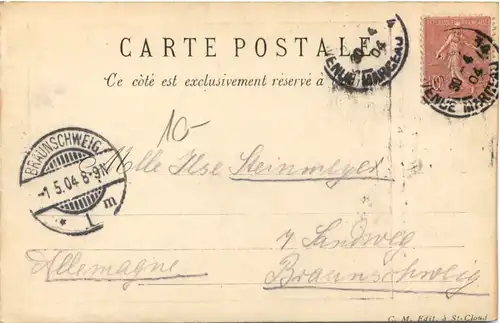 CARTE POSTALE
Ce côté est exclusivement réservé à
30 -4 04
AVENUE MARCEAU
30 -4 04
AVENUE MARCEAU
10-
BRAUNSCHWEIG
-1.5.04 8-9N
* 1 m
Mlle Ilse Steinmeyer
7 Sandweg
Allemagne
Braunschweig
C. M. Edit. à St-Cloud